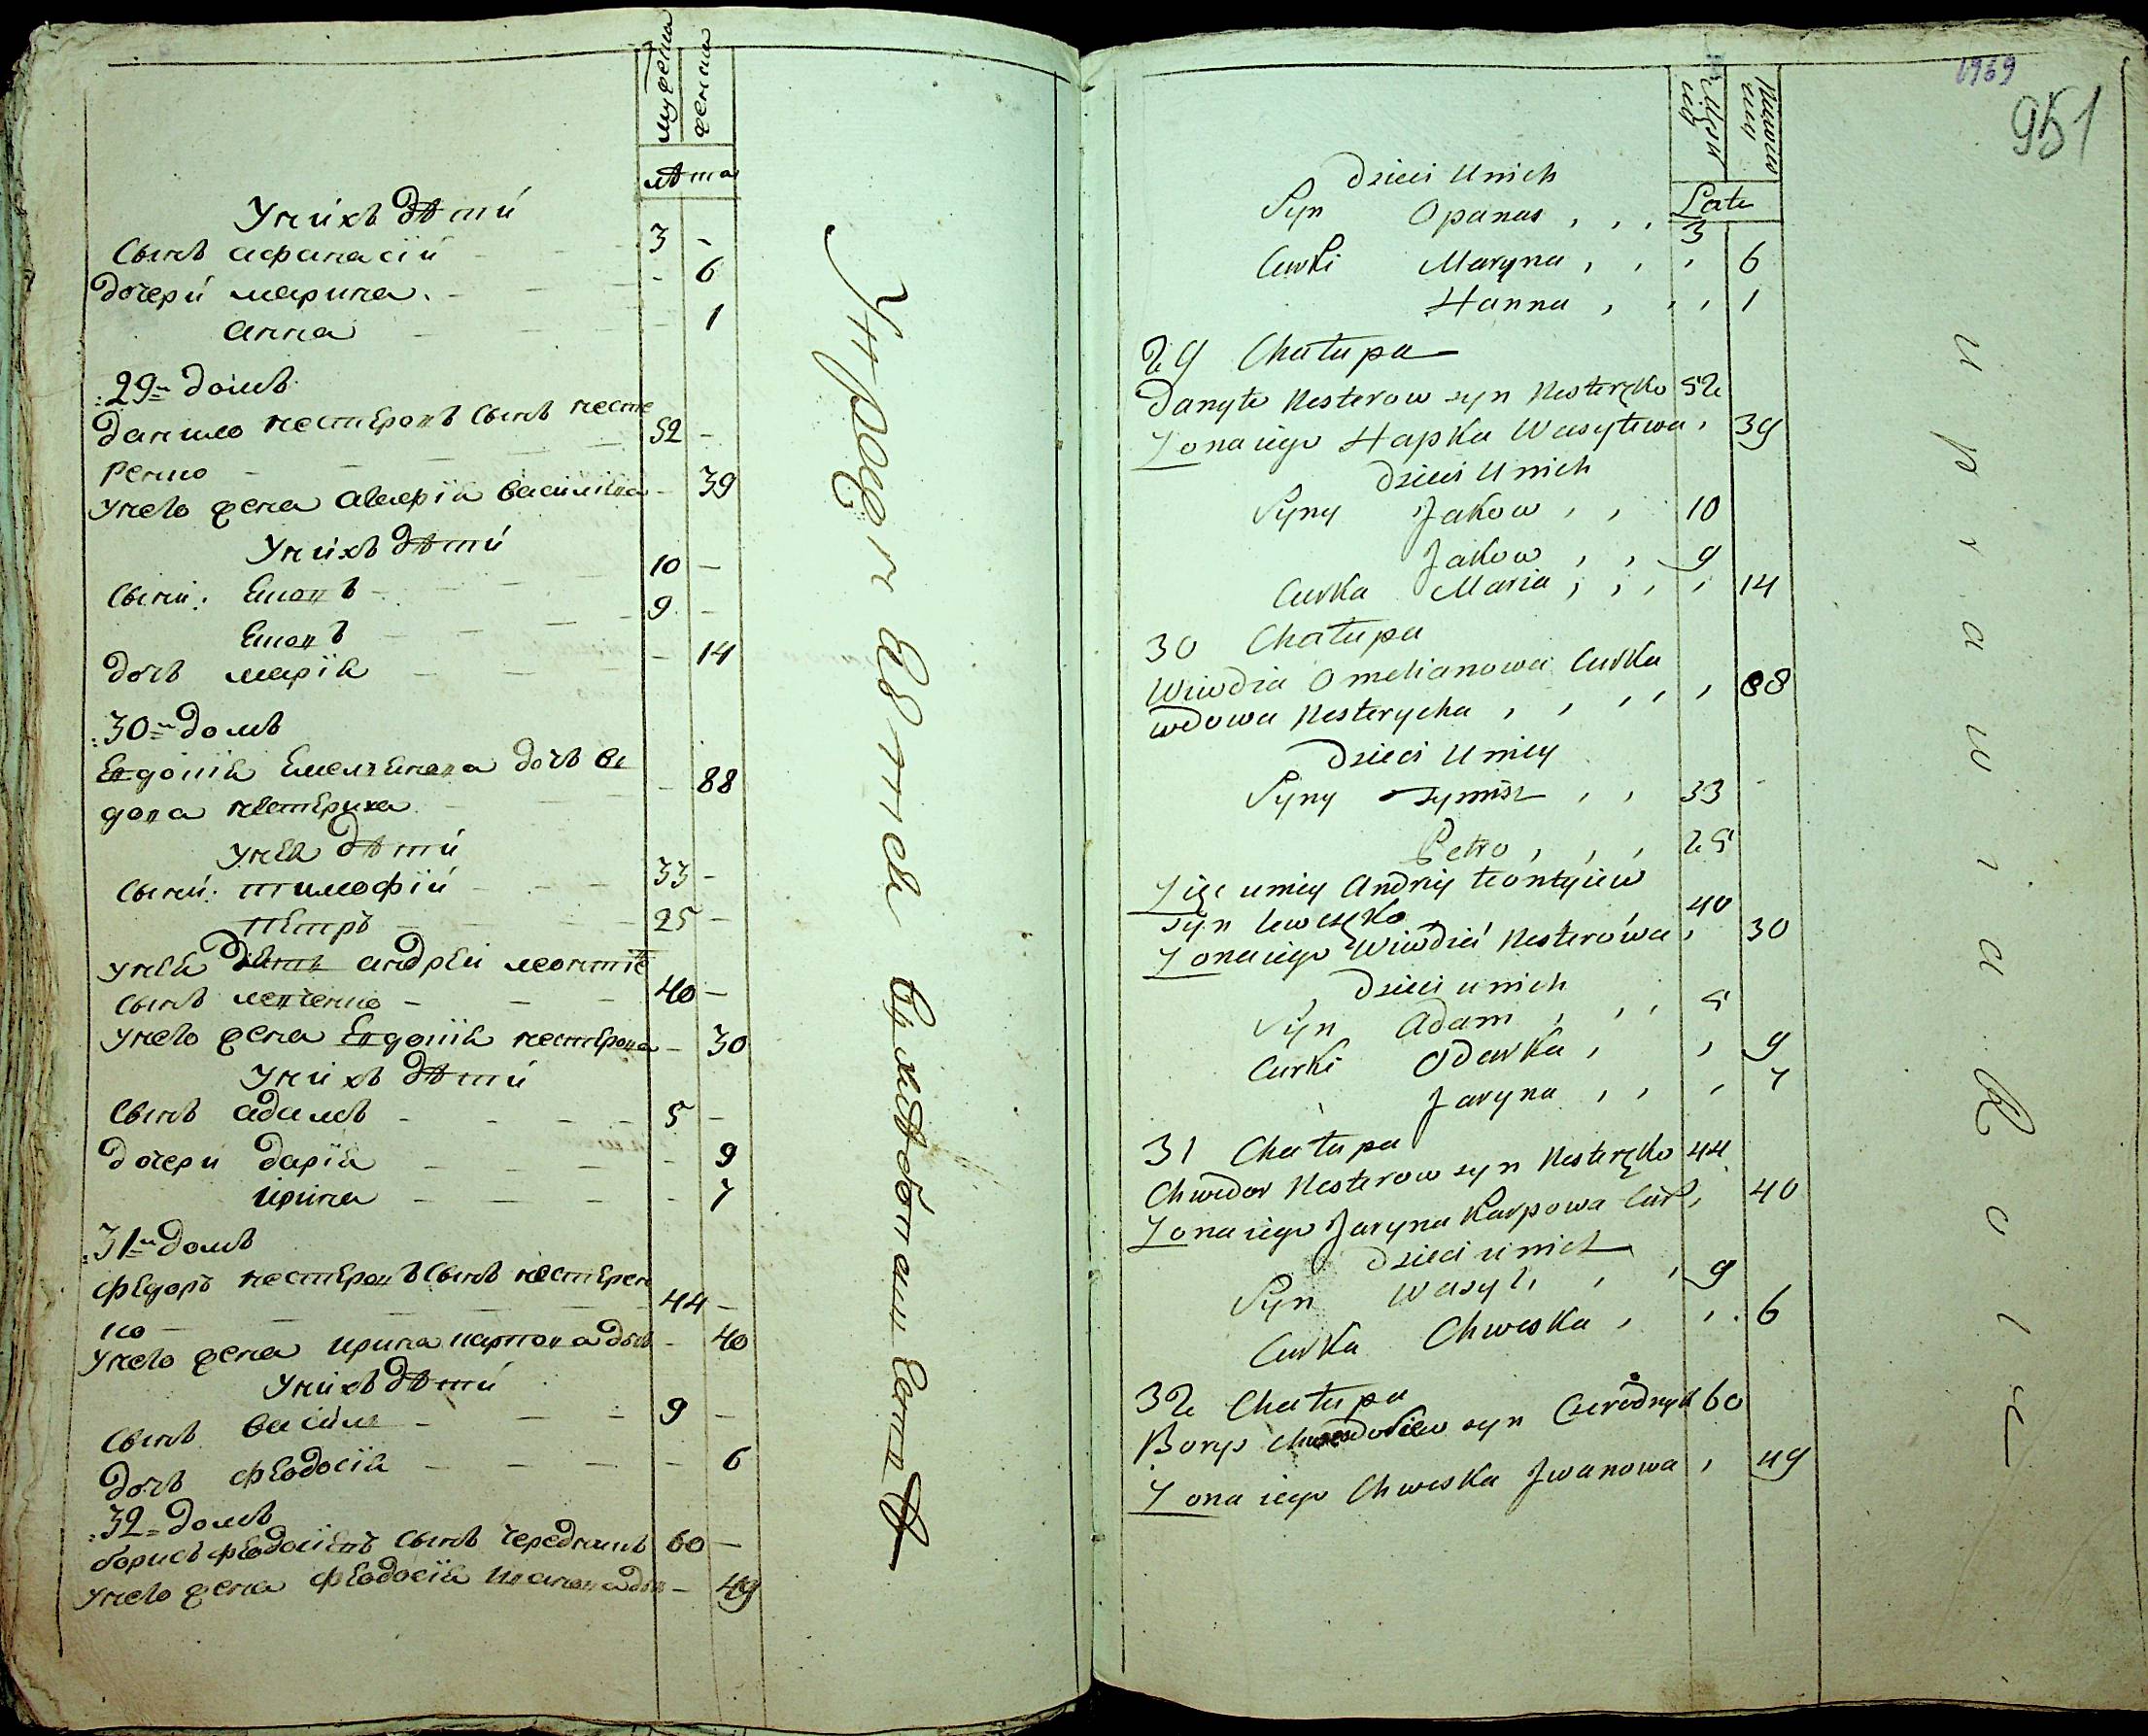 мужеска
женска
лѣта
У нихъ дѣти
Сынъ афанасiй 3 -
дочери марина - 6
анна - 1
29 домъ
данило нестеровъ сынъ несте
ренко 52 -
У него жена Василiва - 39
У нихъ дѣти
Сыни: 10 -
9 -
дочь марiя - 14
30 домъ
Емелянова дочь в
дова нестериха - 88
У нея дѣти
Сыни: тимофiй 33 -
петръ 25 -
У нея зять андрей леонтiе
сынъ левченко 40 -
У него жена нестерова - 30
У нихъ дѣти
Сынъ адамъ 5 -
дочери дарiя - 9
ирина - 7
31 домъ
федоръ нестеровъ сынъ нестерен
ко 44 -
У него жена ирина карпова дочь - 40
У нихъ дѣти
Сынъ василь 9 -
дочь феодосiя - 6
32 домъ
борисъ сынъ чередникъ 60 -
У него жена феодосiя иванова - 49
951
Męzki
Lata
Dzieci u nich
Syn Opanas 3
Curki Maryna 6
Hanna 1
29 Chałupa
Danyło Nesterow syn Nesteręko 52
Zona iego Hapka Wasylewa 39
Dzieci u nich
Syny Jakow 10
Jakow 9
Curka Maria 14
30 Chałupa
Wiwdia Omelianowa Curka
wdowa Nesterycha 88
Dzieci u niey
Syny Tymisz 33
Petro 25
Zięc u niey Andriy Leontyiew
syn Lewczęko 40
Zona iego Wiwdia Nesterówa 30
Dzieci u nich
Syn Adam 5
Curki Odarka 9
Jaryna 7
31 Chałupa
Chwedor Nesterow syn Nesteręko 44
Zona iego Jaryna Karpowa Cur 40
Dzieci u nich
Syn Wasyl 9
Curka Chweska 6
32 Chałupa
Borys syn Czerednyk 60
Zona iego Chweska Jwanowa 49